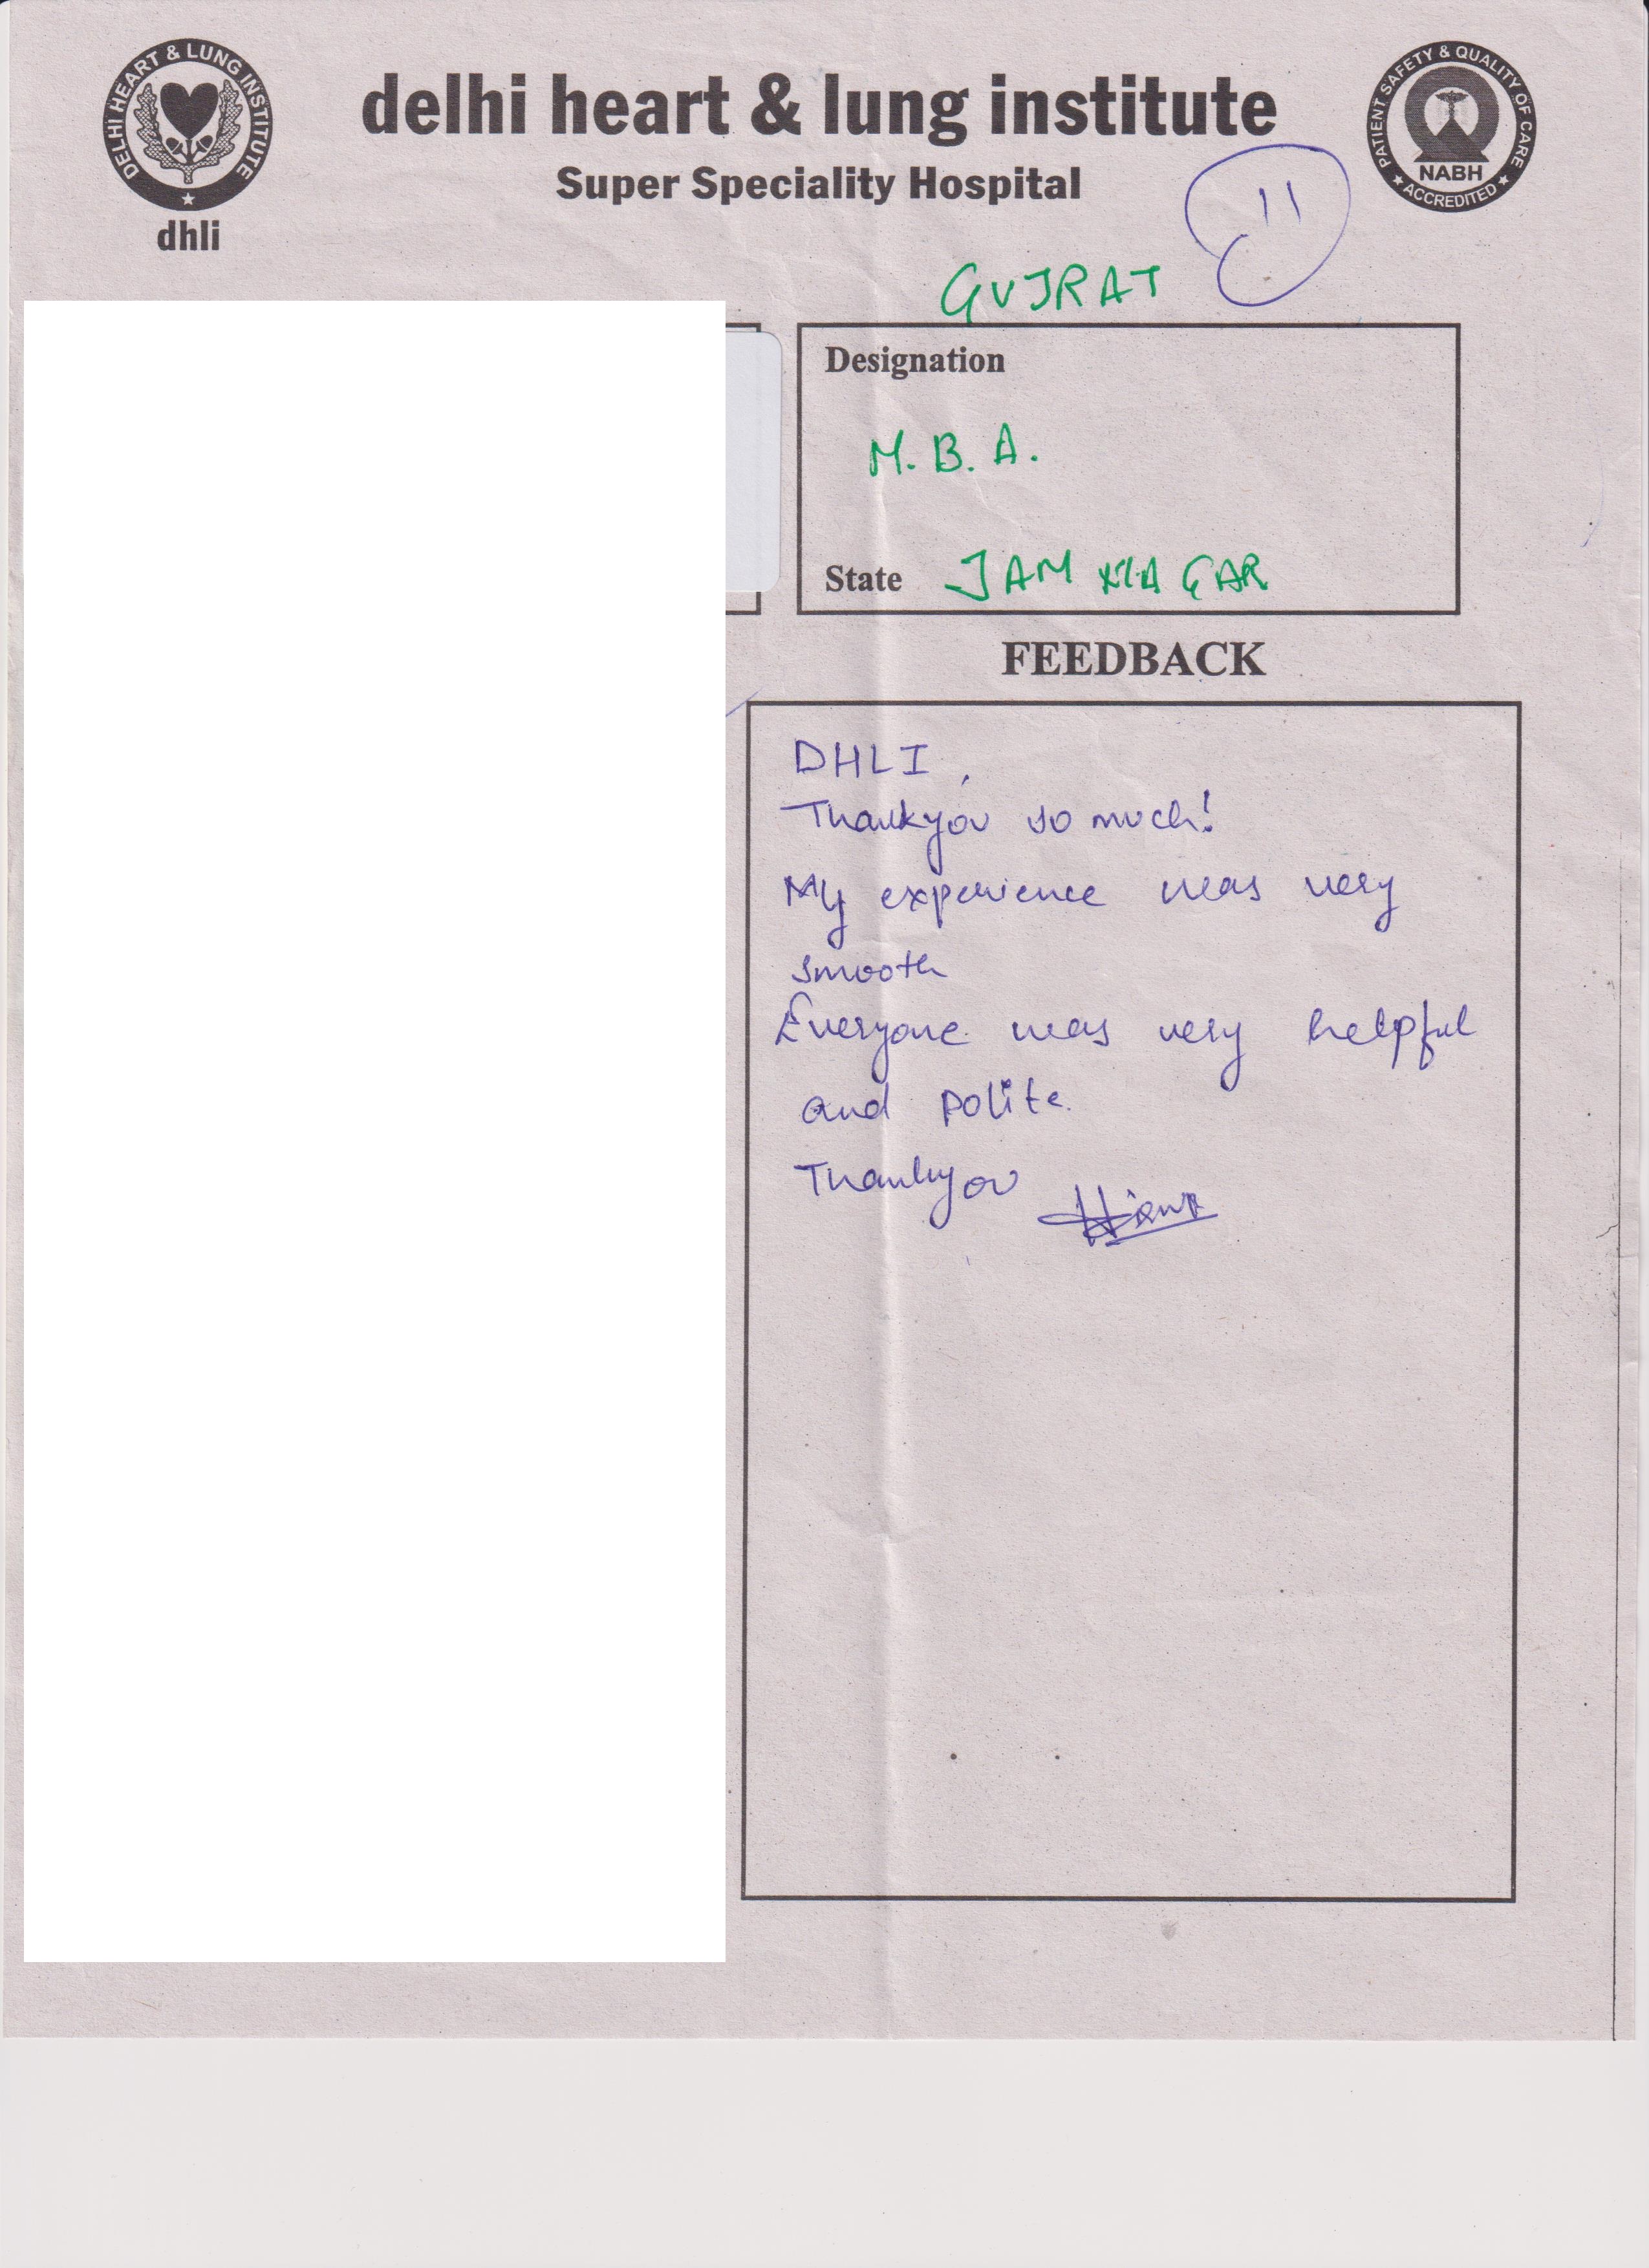 DELHI HEART & LUNG INSTITUTE
dhli
delhi heart & lung institute
Super Speciality Hospital
PATIENT SAFETY & QUALITY OF CARE
NABH
★ ACCREDITED ★
GUJRAT
Designation
M. B. A.
State JAMNAGAR
FEEDBACK
DHLI,
Thankyou so much!
My experience was very
smooth
Everyone was very helpful
and polite.
Thankyou